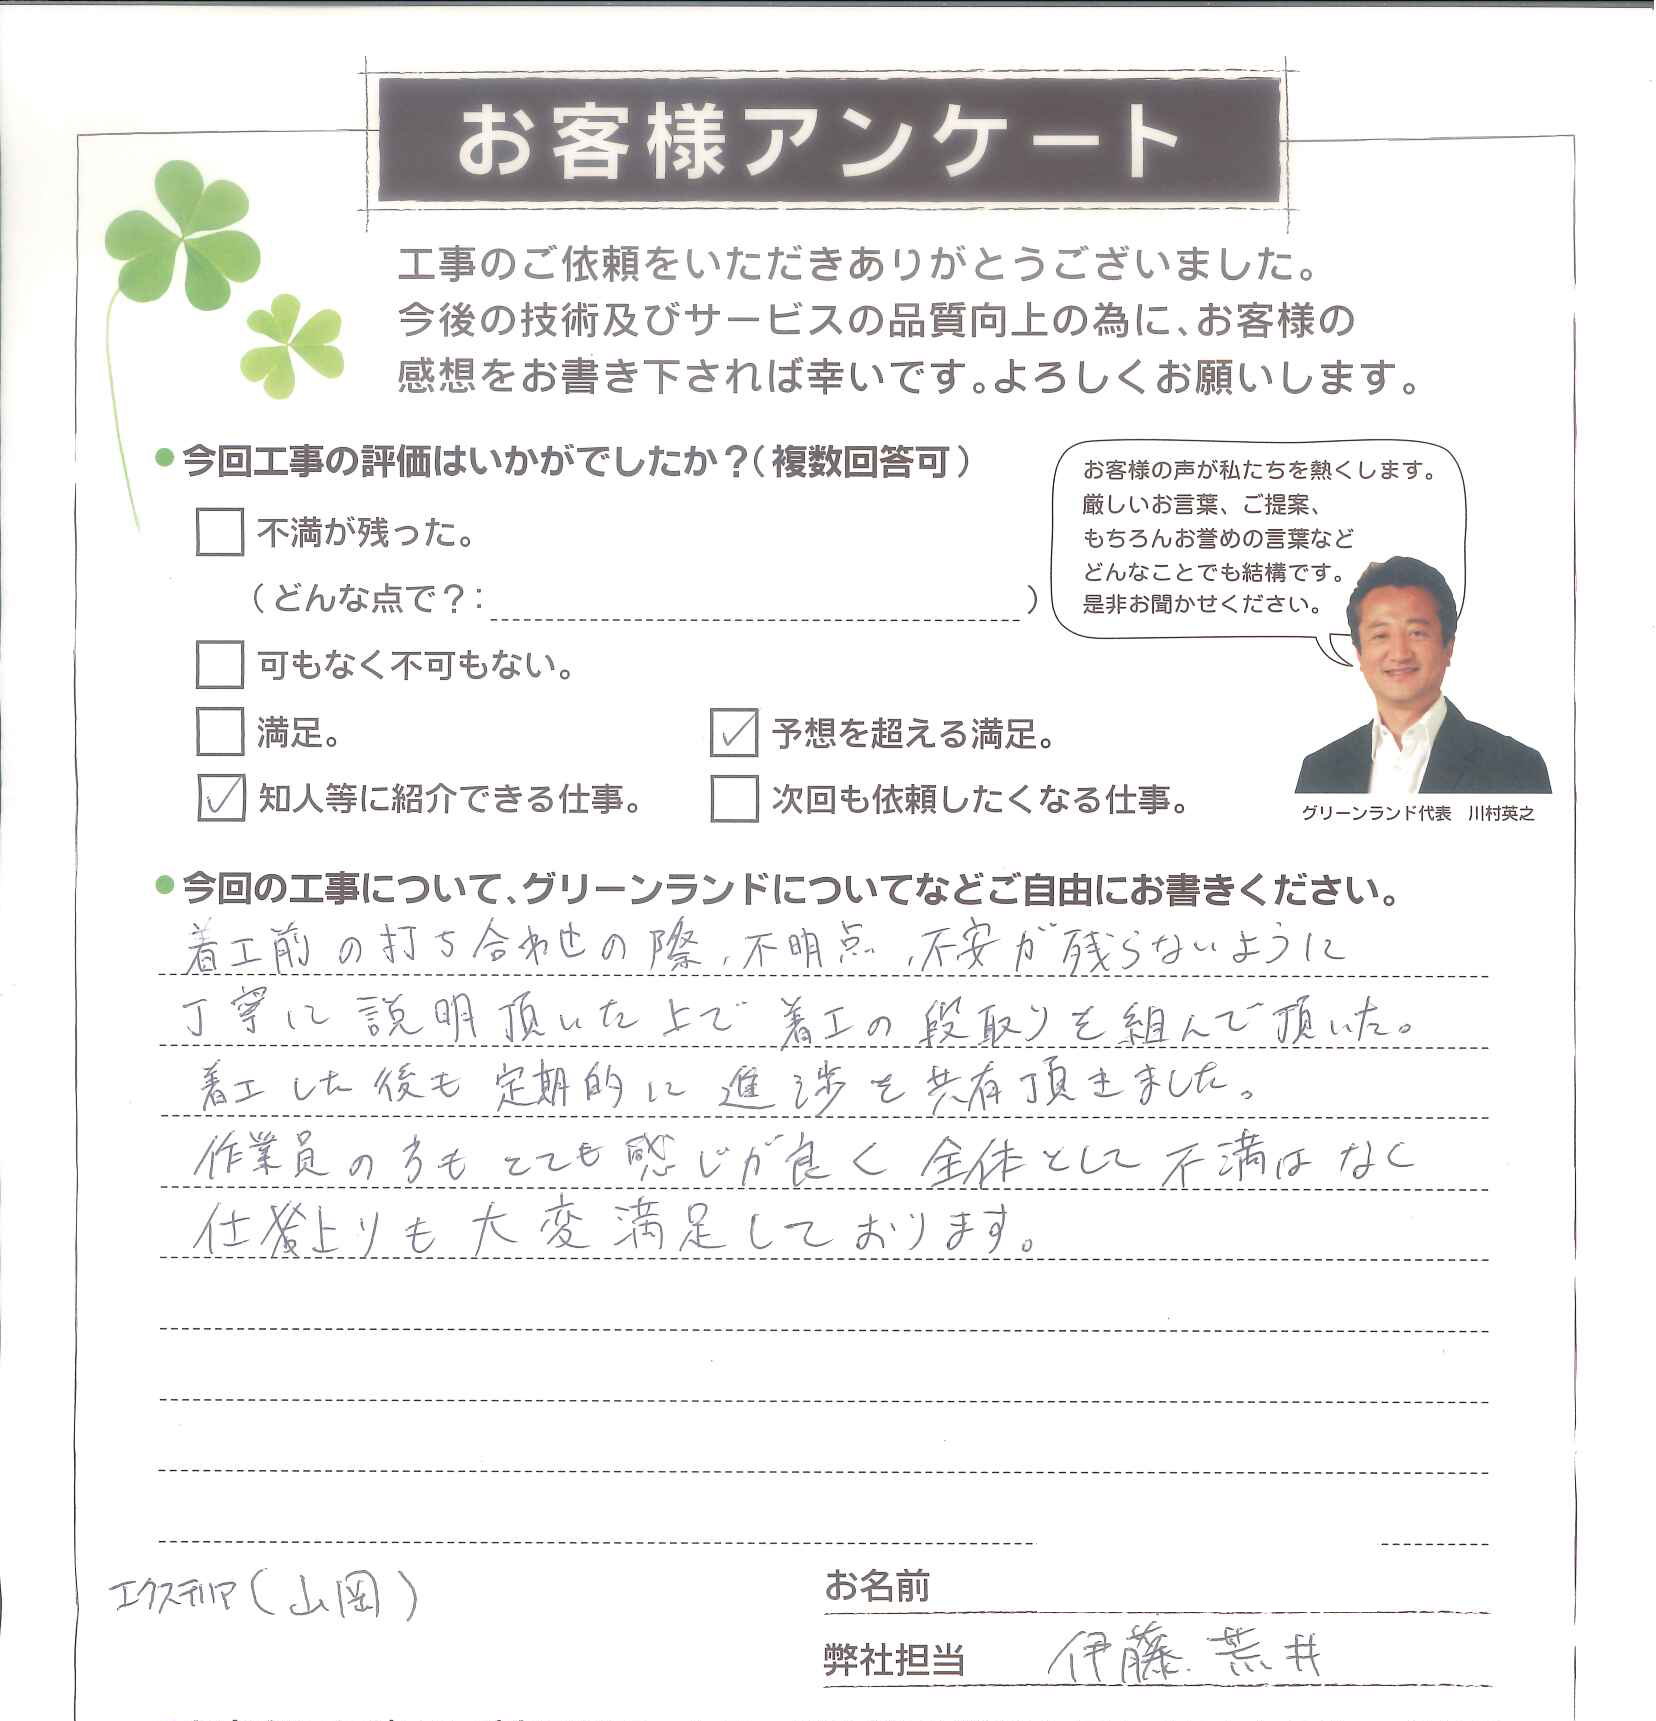 お客様アンケート
工事のご依頼をいただきありがとうございました。
今後の技術及びサービスの品質向上の為に、お客様の
感想をお書き下されば幸いです。よろしくお願いします。
●今回工事の評価はいかがでしたか？（複数回答可）
不満が残った。
（どんな点で？：　　　）
可もなく不可もない。
満足。
✓ 予想を超える満足。
✓ 知人等に紹介できる仕事。
次回も依頼したくなる仕事。
お客様の声が私たちを熱くします。
厳しいお言葉、ご提案、
もちろんお誉めの言葉など
どんなことでも結構です。
是非お聞かせください。
グリーンランド代表　川村英之
●今回の工事について、グリーンランドについてなどご自由にお書きください。
着工前の打ち合わせの際、不明点、不安が残らないように
丁寧に説明頂いた上で着工の段取りを組んで頂いた。
着工した後も定期的に進渉を共有頂きました。
作業員の方もとても感じが良く全体として不満はなく
仕上りも大変満足しております。
エクステリア（山岡）
お名前
弊社担当　伊藤、荒井